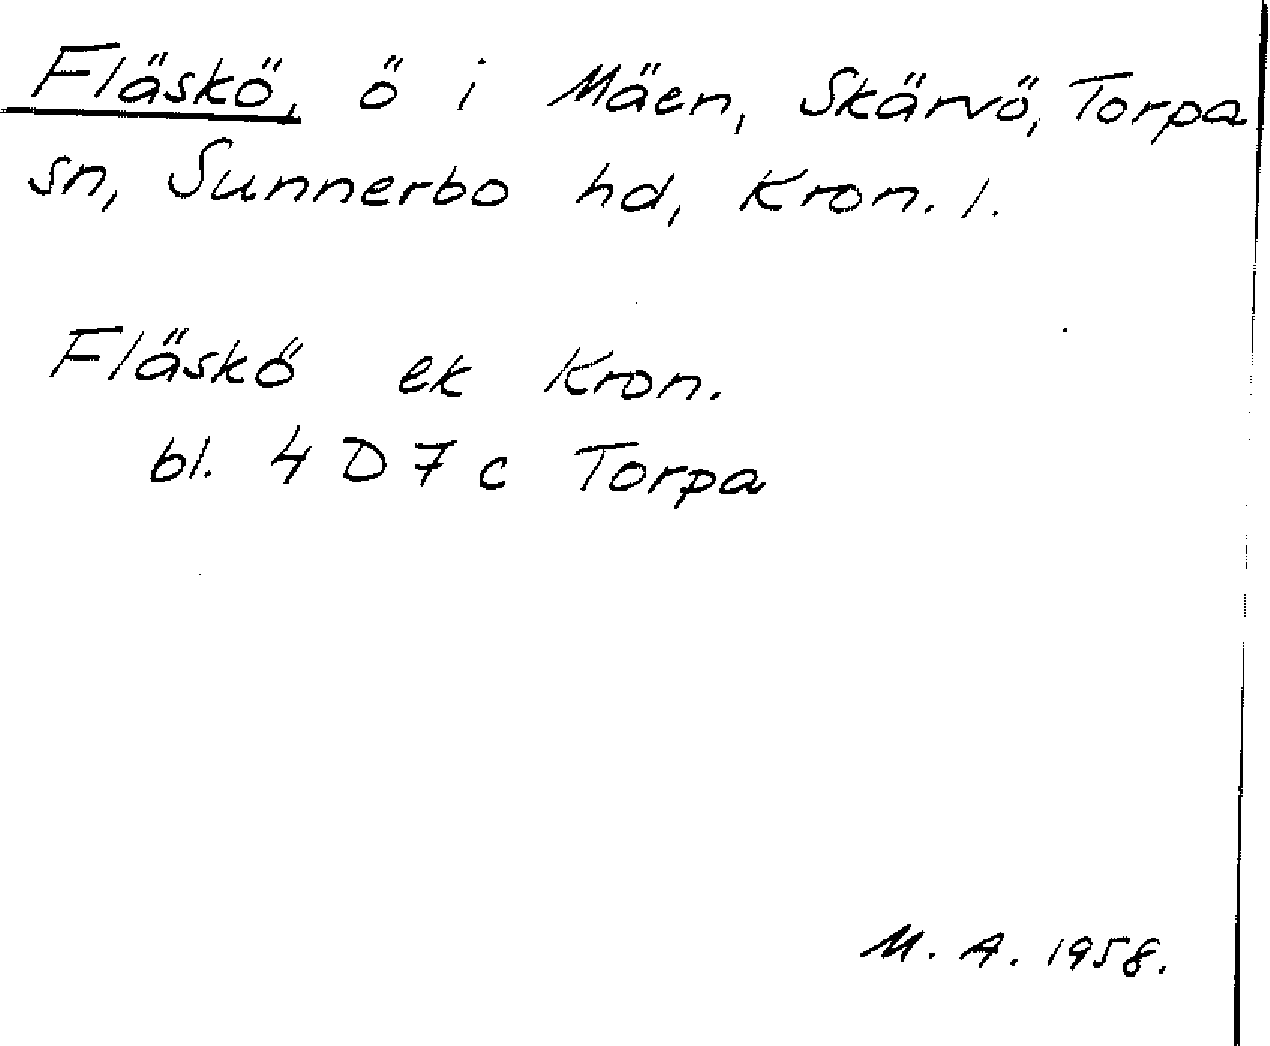 Fläskö, ö i Mäen, Skärvö, Torpa
sn, Sunnerbo hd, Kron. l.
Fläskö ek Kron.
bl. 4 D 7 c Torpa
M. A. 1958.